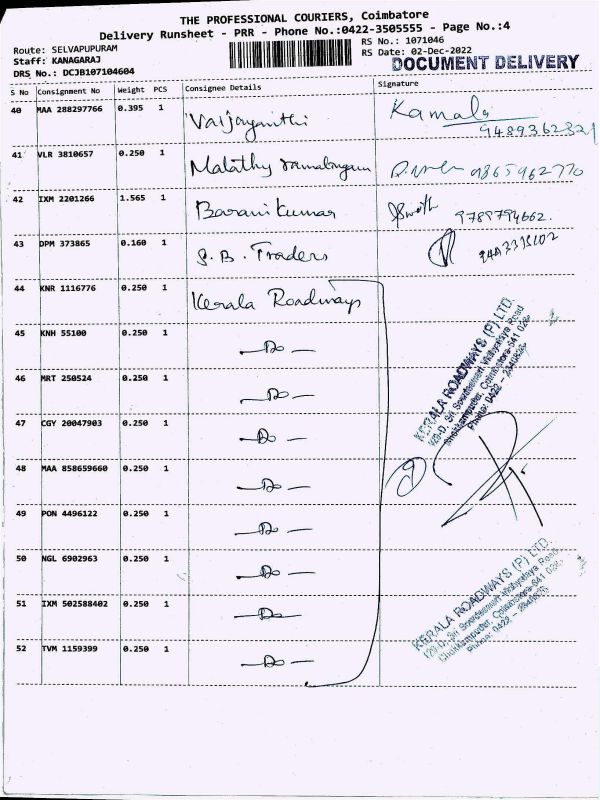 THE PROFESSIONAL COURIERS, Coimbatore
Delivery Runsheet - PRR - Phone No.:0422-3505555 - Page No.:4
Route: SELVAPUPURAM
Staff: KANAGARAJ
DRS No.: DCJB107104604
RS No.: 1071046
RS Date: 02-Dec-2022
DOCUMENT DELIVERY
S No Consignment No Weight PCS Consignee Details Signature
40 MAA 288297766 0.395 1 Vaijayanthi Kamala
9489362321
41 VLR 3810657 0.250 1 Malathy 9865962770
42 IXM 2201266 1.565 1 Baranikumar Swathi 9789794662.
43 DPM 373865 0.160 1 S.B. Traders
44 KNR 1116776 0.250 1 Kerala Roadways
45 KNH 55100 0.250 1 - Do -
46 MRT 250524 0.250 1 - Do -
47 CGY 20047903 0.250 1 - Do -
48 MAA 858659660 0.250 1 - Do -
49 PON 4496122 0.250 1 - Do -
50 NGL 6902963 0.250 1 - Do -
51 IXM 502588402 0.250 1 - Do -
52 TVM 1159399 0.250 1 - Do -
KERALA ROADWAYS (P) LTD.
129-D, Sri Soundeswari Vidhyalaya Road
Chokkampudur, Coimbatore-641 026
Phone: 0422 - 2340826
KERALA ROADWAYS (P) LTD.
129-D, Sri Soundeswari Vidhyalaya Road
Chokkampudur, Coimbatore-641 026